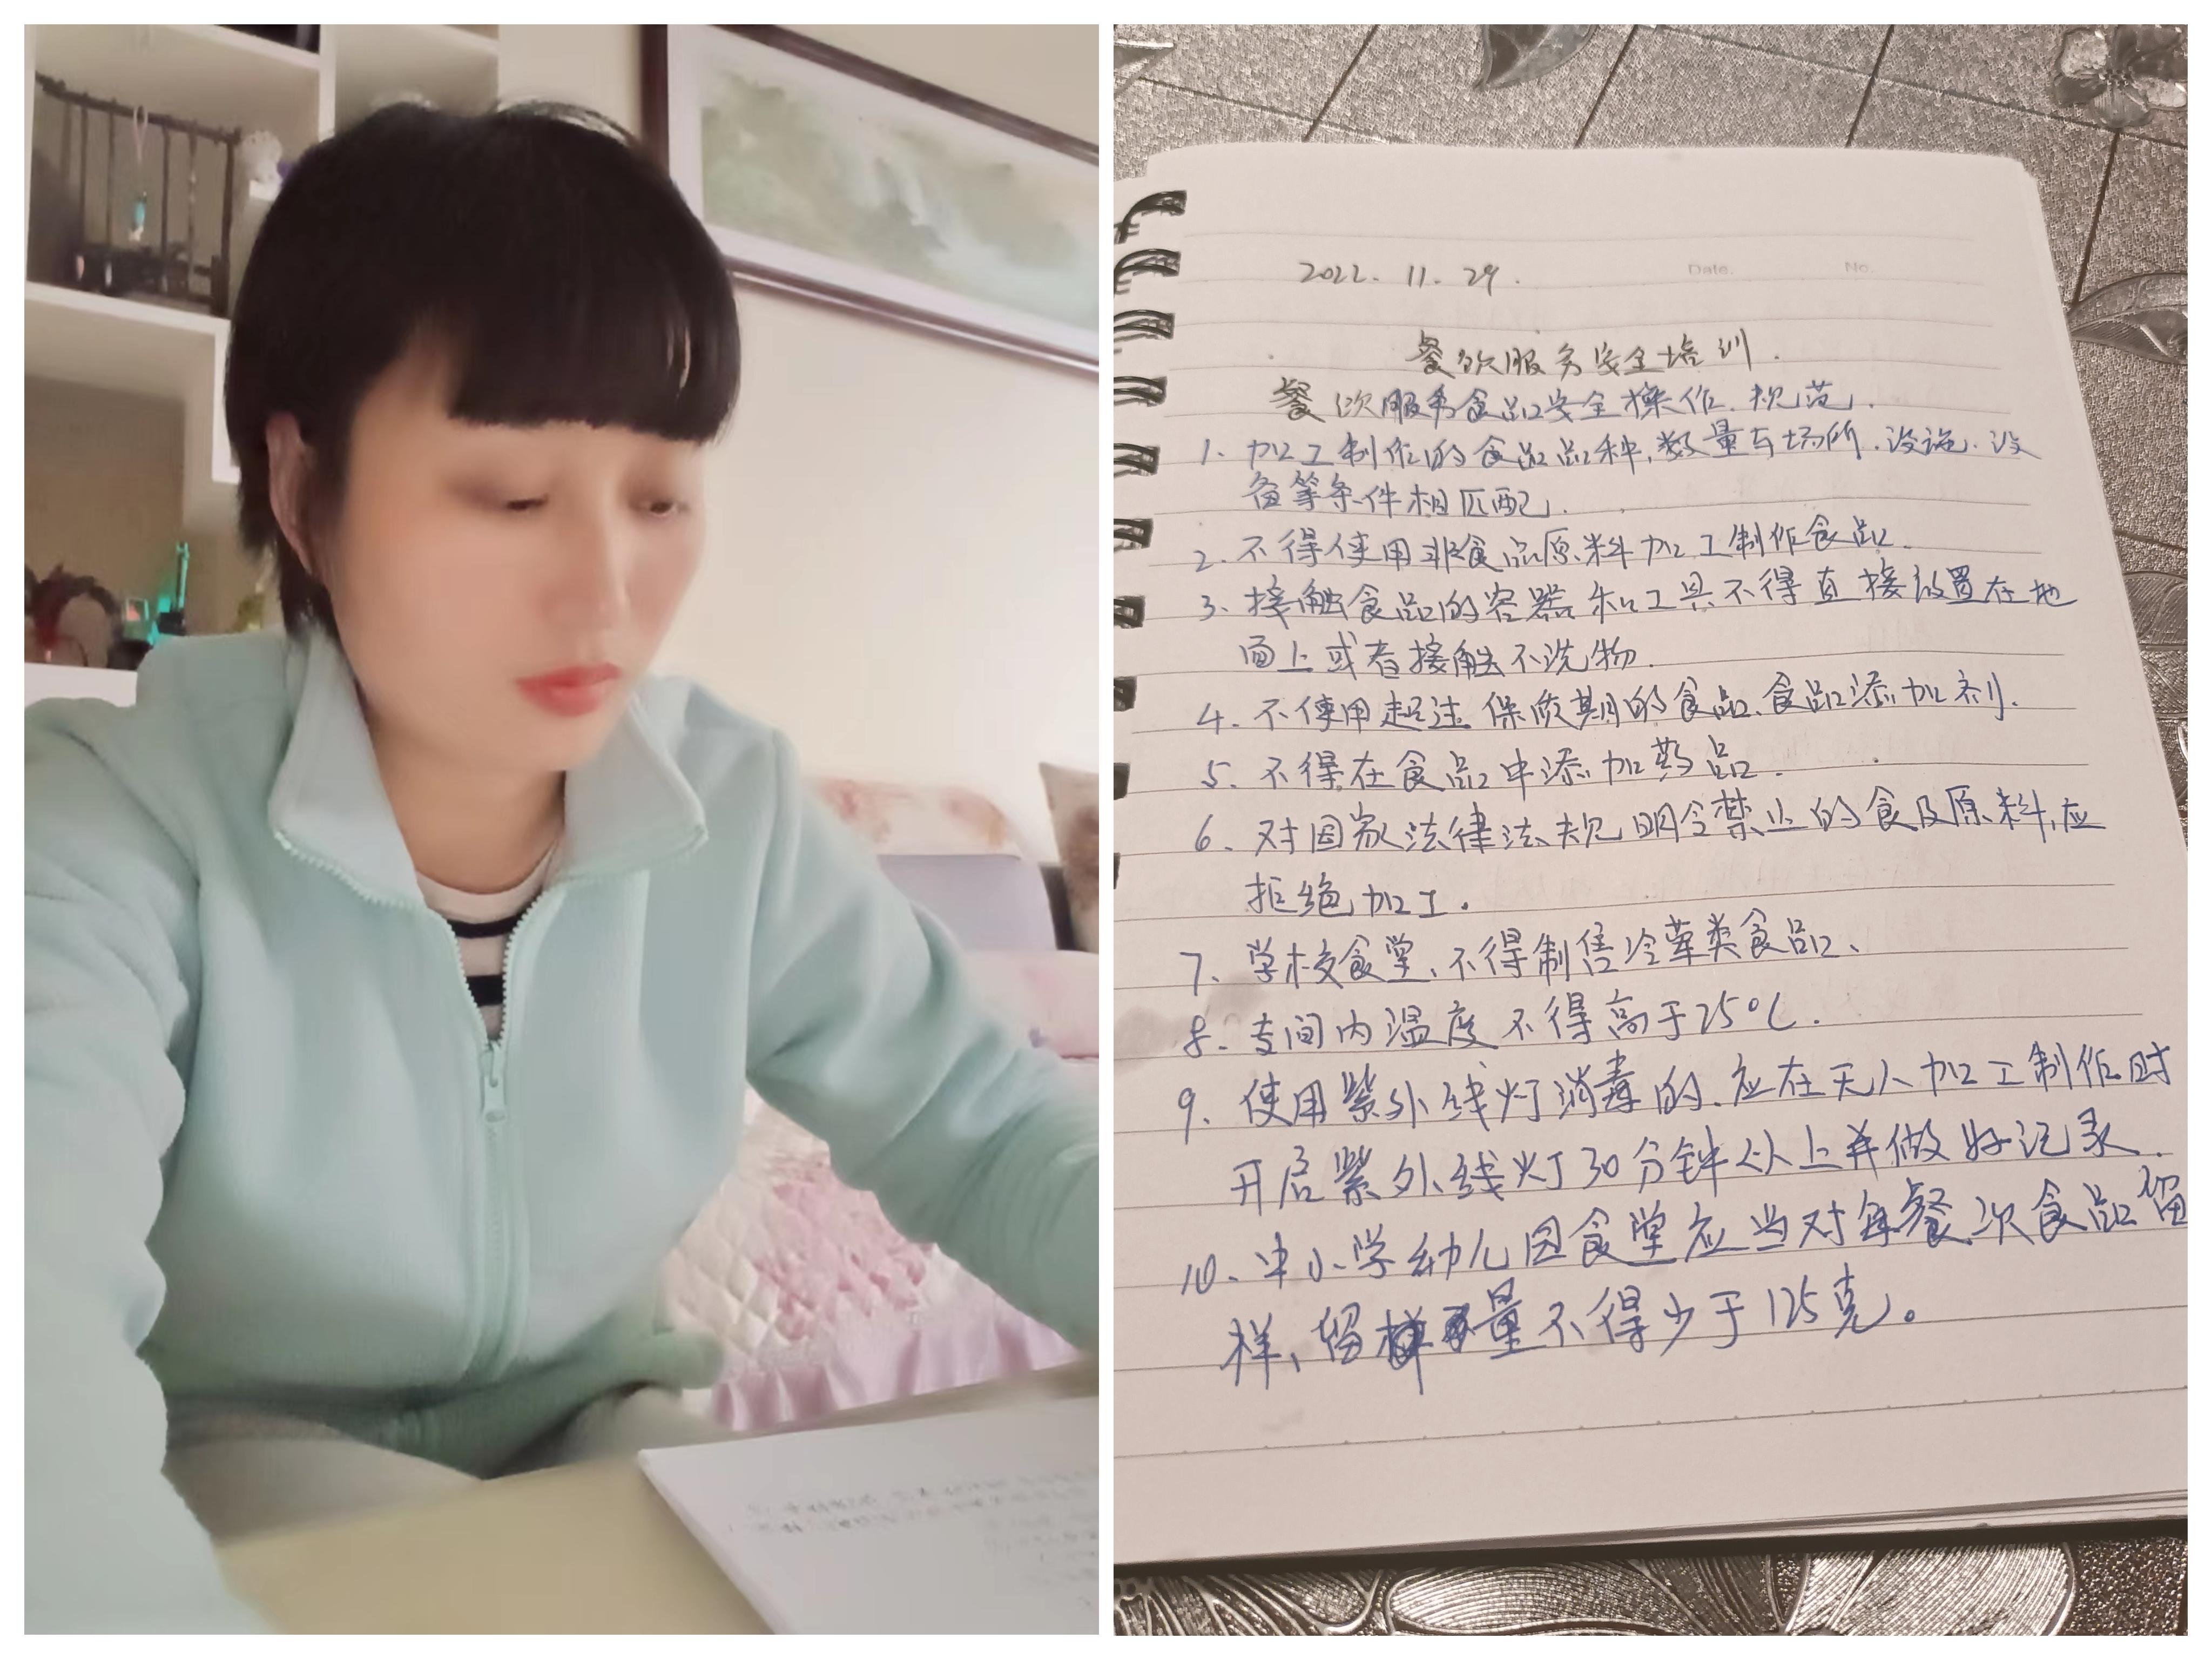 Date.
No.
2022. 11. 29.
餐饮服务安全培训.
餐饮服务食品安全操作.规范.
1、加工制作的食品品种,数量与场所.设施.设
备等条件相匹配.
2.不得使用非食品原料加工制作食品.
3、接触食品的容器和工具不得直接放置在地
面上或者接触不洗物.
4.不使用超过保质期的食品、食品添加剂.
5、不得在食品中添加药品.
6、对国家法律法规明令禁止的食及原料,应
拒绝加工.
7、学校食堂、不得制售冷荤类食品、
8、专间内温度不得高于25℃.
9、使用紫外线灯消毒的.应在无人加工制作时
开启紫外线灯30分钟以上并做好记录.
10、中小学幼儿园食堂应当对每餐次食品留
样、留样量不得少于125克。